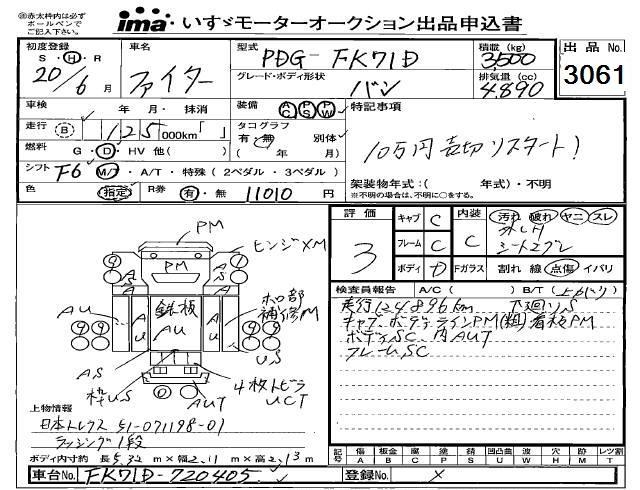 ※赤太枠内は必ず
ボールペンで
ご記入下さい。
ima いすゞモーターオークション出品申込書
初度登録 S・H・R 20/6月
車名 ファイター
型式 PDG-FK71D
積載(kg) 3500
グレード・ボディ形状 バン
排気量(cc) 4.890
出品No. 3061
車検 年 月・抹消
装備 AC PS PW
特記事項
走行(B) 125000km「 」
タコグラフ 有・無 別体
10万円売切リスタート!
燃料 G・D・HV 他( )
( 年 月)
シフト F6 M/T・A/T・特殊(2ペダル・3ペダル)
架装物年式:( 年式)・不明
※市場の場合は、不明に○をする。
色 指定 R券 有・無 11010円
評価 3
キャブ C
フレーム C
ボディ D
内装 C
汚れ 破れ ヤニ スレ
シート
Fガラス 割れ 線 点傷 イバリ
検査員報告 A/C( ) B/T( )
実行124896km 下廻りS
キャブ、ボディラインPM(粗)看板PM
ボディSC、内AUT
フレームSC
PM
PM
ヒンジXM
AS
AS
AU
AU
鉄板
AU
AU
AU
ホロ部
補修M
AS
US
枠US
4枚トビラ
UCT
AUT
上物情報
日本トレクス 51-071198-01
ラッシング1段
ボディ内寸約 長5.32m×幅2.11m×高2.13m
記号 傷A 板金B 腐C 塗P 錆S 凹凸曲U 波W 穴H 跡M 跡T レツ割T
車台No. FK71D-720405
登録No. ×